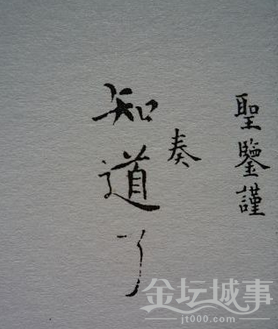 聖鑒謹
奏
知道了
金坛城事
jt000.com